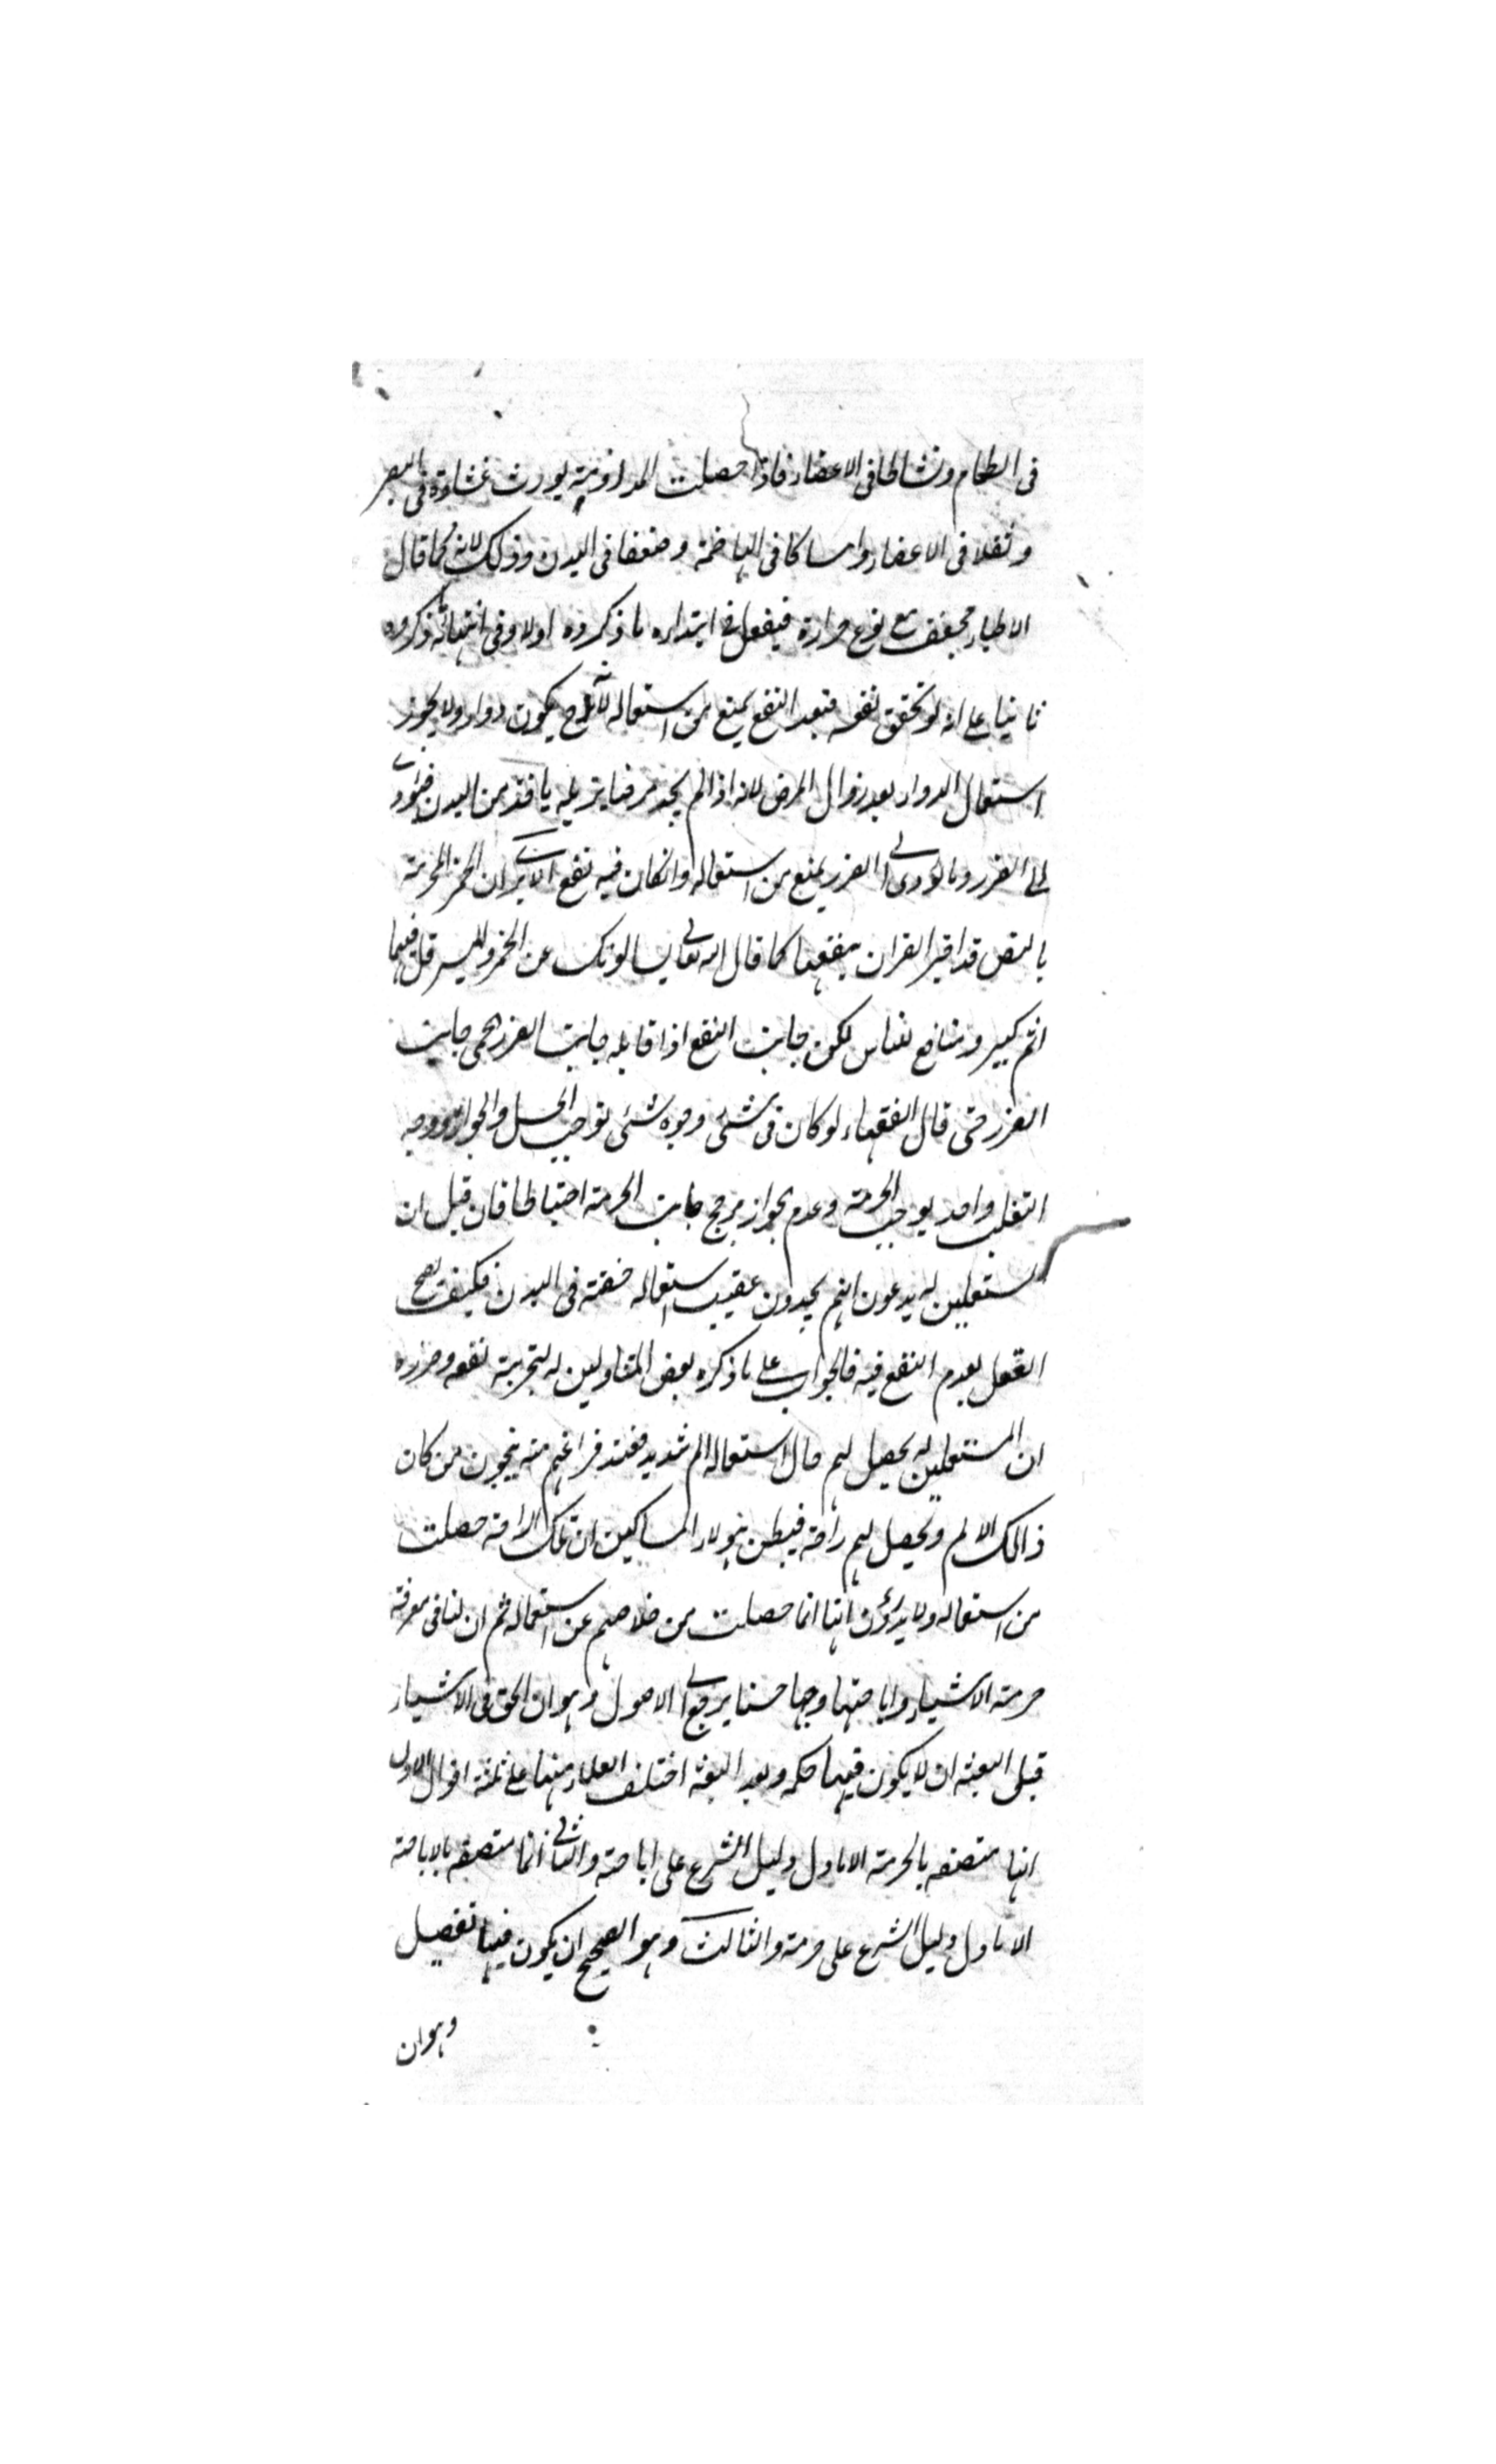 فى الطعام ونشاطا فى الاعضاء فاذا حصلت المداومة يورث غشاوة فى البصر
وثقلا فى الاعضاء وامساكا فى الهاضمة وضعفا فى البدن وذلك لانه كما قال
الاطباء مجفف مع نوع حرارة فيفعل فى ابتداءه ما ذكروه اولا وفى انتهائه ذكروه
ثانيا على انه لو تحقق نفعه فبعد النفع يمنع من استعماله لانه ح يكون دواء ولا يجوز
استعمال الدواء بعد زوال المرض لانه اذا لم يجد مرضا يزيله يأخذ من البدن فيؤدى
الى الضرر وما يؤدى الى الضرر يمنع من استعماله وانكان فيه نفع الا يرى ان الخمر المحرمة
بالنص قد اخبر القران بنفعها كما قال الله تعالى يسالونك عن الخمر والميسر قل فيهما
اثم كبير ومنافع للناس لكن جانب النفع اذا قابله جانب الضرر يحمى جانب
الضرر حتى قال الفقهاء لو كان فى شئ وجوه شتى توجب الحل والجواز ووجه
واحد يوجب الحرمة وعدم الجواز يرجح جانب الحرمة احتياطا فان قيل ان
المستعملين له يدعون انهم يجدون عقيب استعماله خفة فى البدن فكيف يصح
القول بعدم النفع فيه فالجواب على ما ذكره بعض المتناولين له لتجربة نفعه وضرره
ان المستعملين له يحصل لهم حال استعماله الم شديد فعند فراغهم منه ينجون من كان
ذالك الالم ويحصل لهم راحة فيظن هؤلاء المساكين ان تلك الراحة حصلت
من استعماله ولا يدرون انها انما حصلت من خلاصهم عن استعماله ثم ان لنا فى معرفة
حرمة الاشياء واباحتها وجها حسنا يرجع الى الاصول وهو ان الحق فى الاشياء
قبل البعثة ان لا يكون فيها حكم وبعد البعثة اختلف العلماء فيها على ثلثة اقوال الاول
انها متصفة بالحرمة الا ما دل دليل الشرع على اباحته والثانى انها متصفة بالاباحة
الا ما دل دليل الشرع على حرمته والثالث وهو الصحيح ان يكون فيها تفصيل
وهو ان